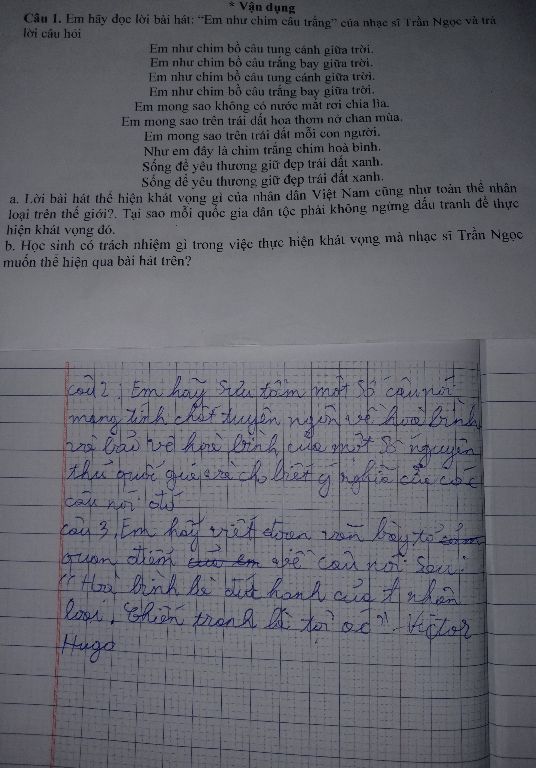 * Vận dụng
Câu 1. Em hãy đọc lời bài hát: “Em như chim câu trắng” của nhạc sĩ Trần Ngọc và trả
lời câu hỏi
Em như chim bồ câu tung cánh giữa trời.
Em như chim bồ câu trắng bay giữa trời.
Em như chim bồ câu tung cánh giữa trời.
Em như chim bồ câu trắng bay giữa trời.
Em mong sao không có nước mắt rơi chia lìa.
Em mong sao trên trái đất hoa thơm nở chan mùa.
Em mong sao trên trái đất mỗi con người.
Như em đây là chim trắng chim hoà bình.
Sống để yêu thương giữ đẹp trái đất xanh.
Sống để yêu thương giữ đẹp trái đất xanh.
a. Lời bài hát thể hiện khát vọng gì của nhân dân Việt Nam cũng như toàn thể nhân
loại trên thế giới?. Tại sao mỗi quốc gia dân tộc phải không ngừng đấu tranh để thực
hiện khát vọng đó.
b. Học sinh có trách nhiệm gì trong việc thực hiện khát vọng mà nhạc sĩ Trần Ngọc
muốn thể hiện qua bài hát trên?
Câu 2: Em hãy sưu tầm một số câu nói
mang tính chất tuyên ngôn về hoà bình
và bảo vệ hoà bình của một số nguyên
thủ quốc gia và cho biết ý nghĩa của các
câu nói đó
câu 3, Em hãy viết đoạn văn bày tỏ
quan điểm về câu nói sau:
"Hoà bình là đức hạnh của nhân
loại. Chiến tranh là tội ác". Victor
Hugo